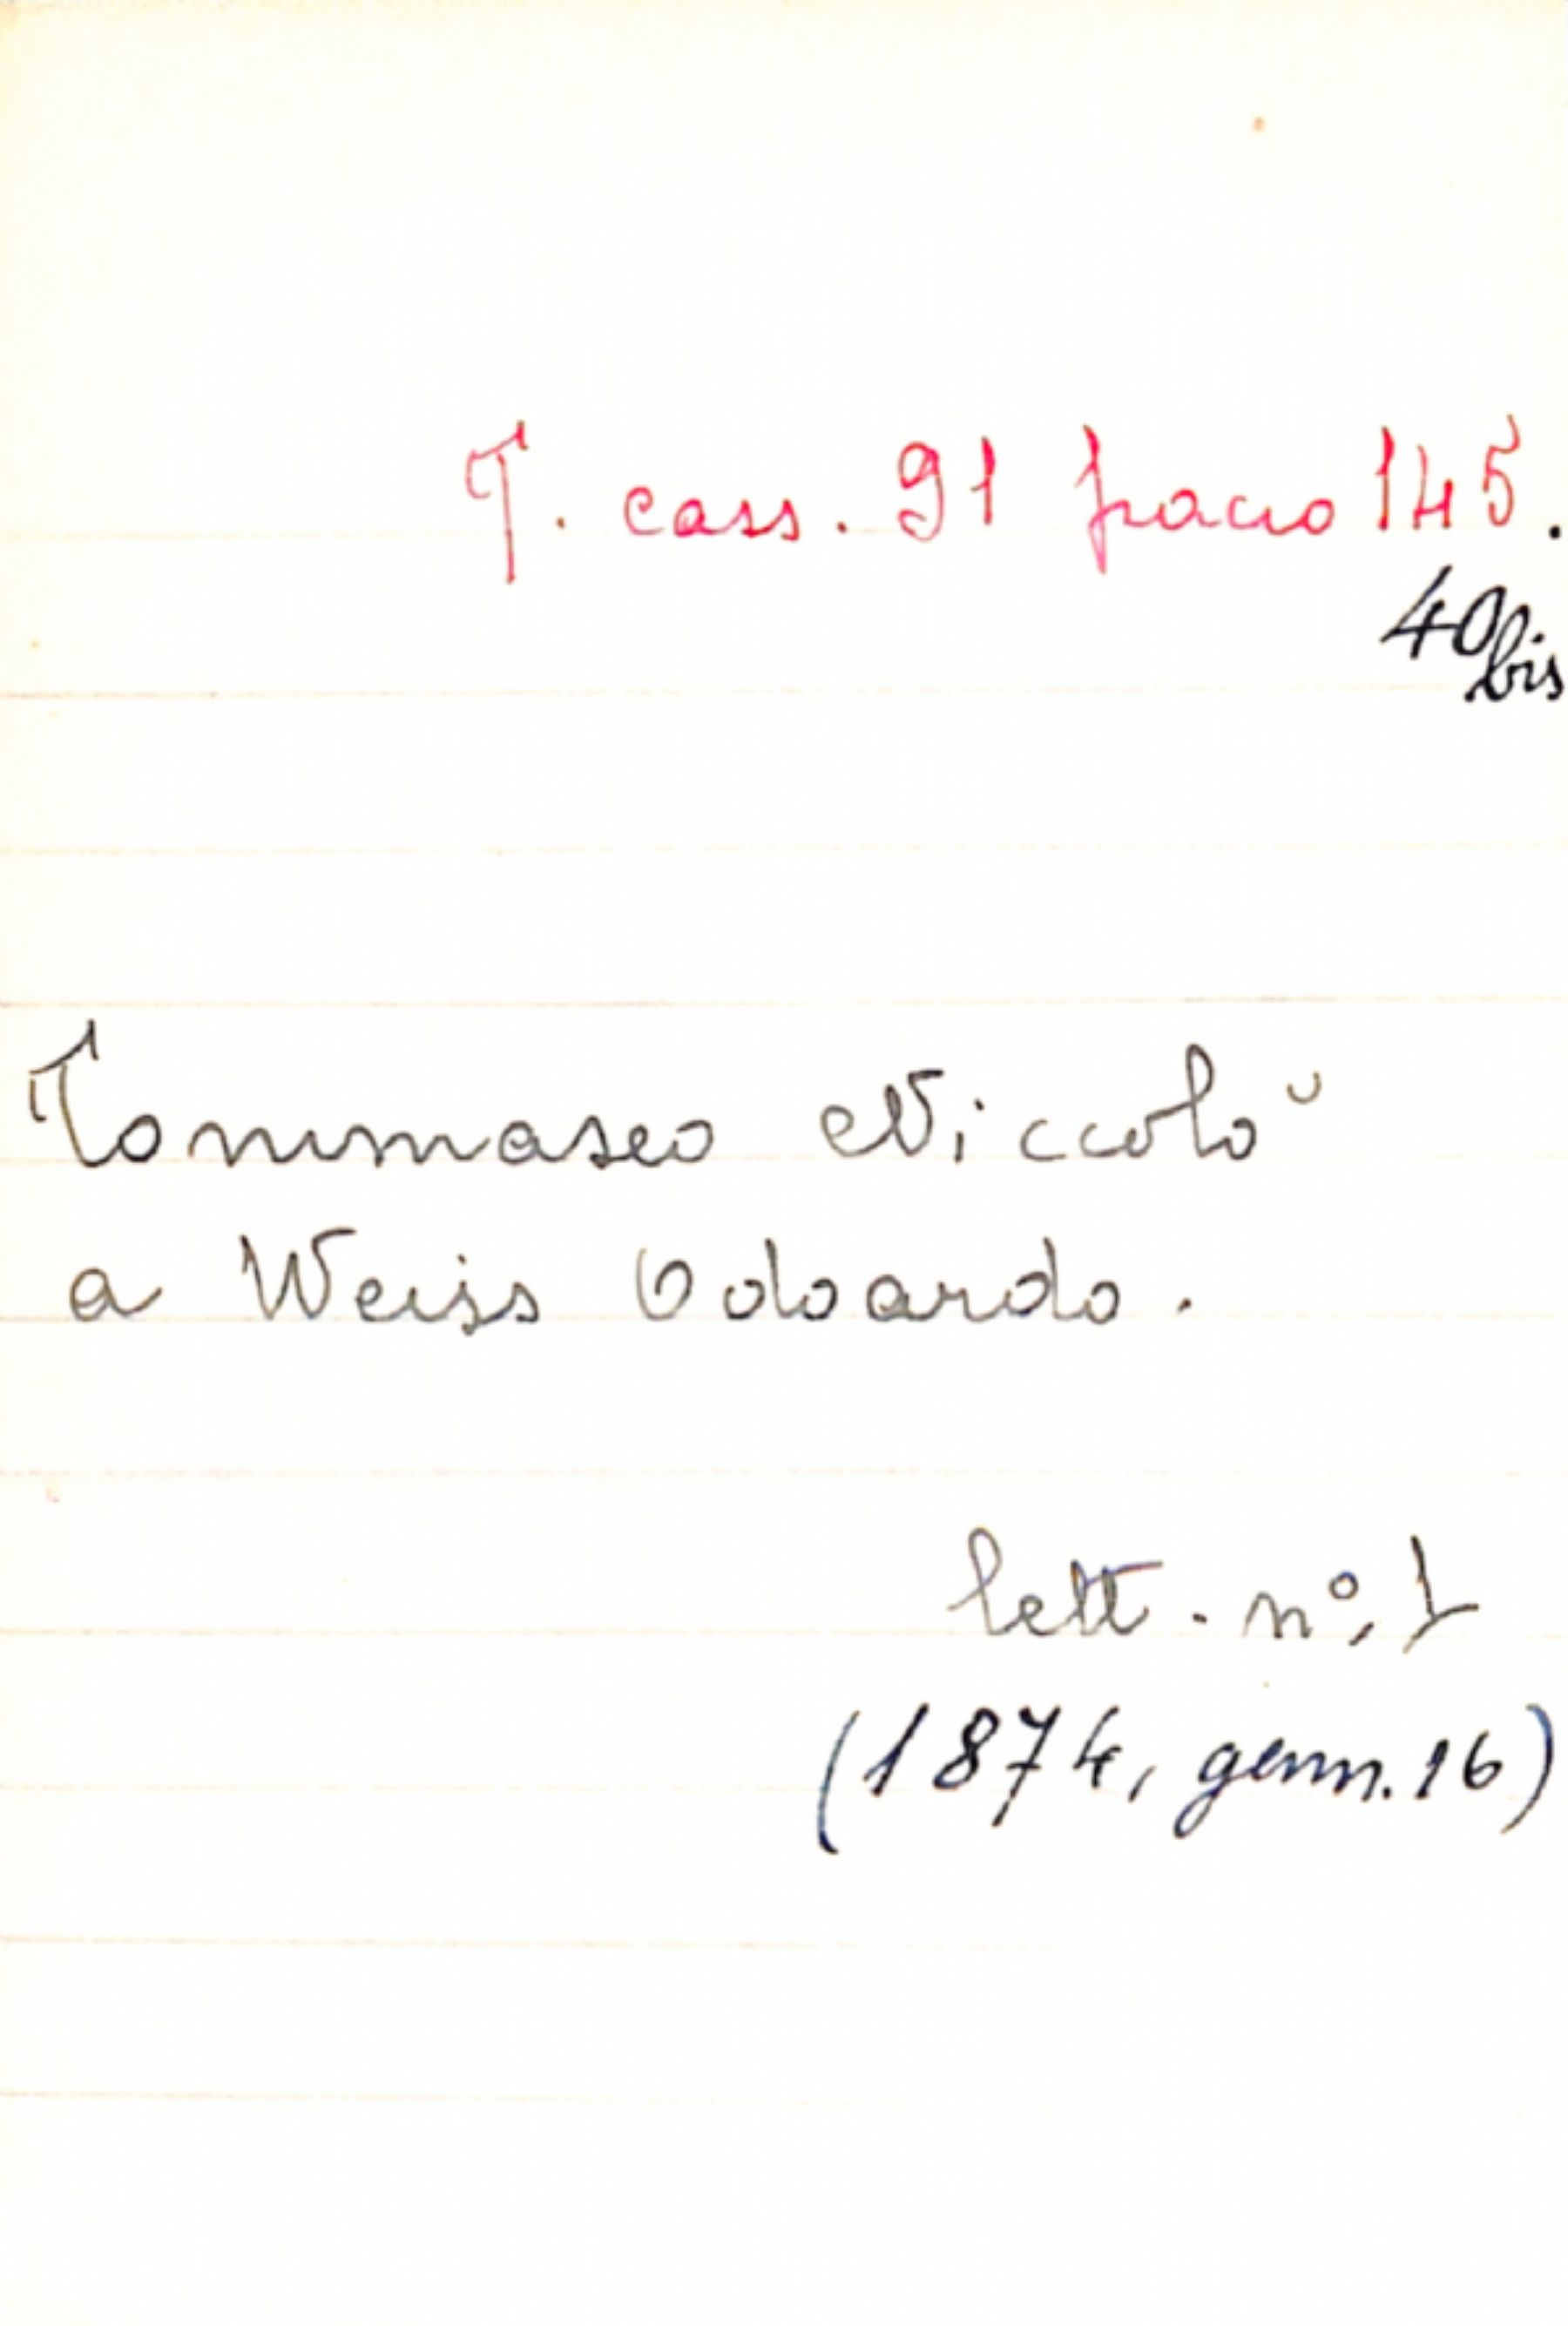 T. cass. 91 fracio 145.
40 bis
Tommaseo Niccolò
a Weiss Odoardo.
lett. n°, 1
(1874, genn. 16)